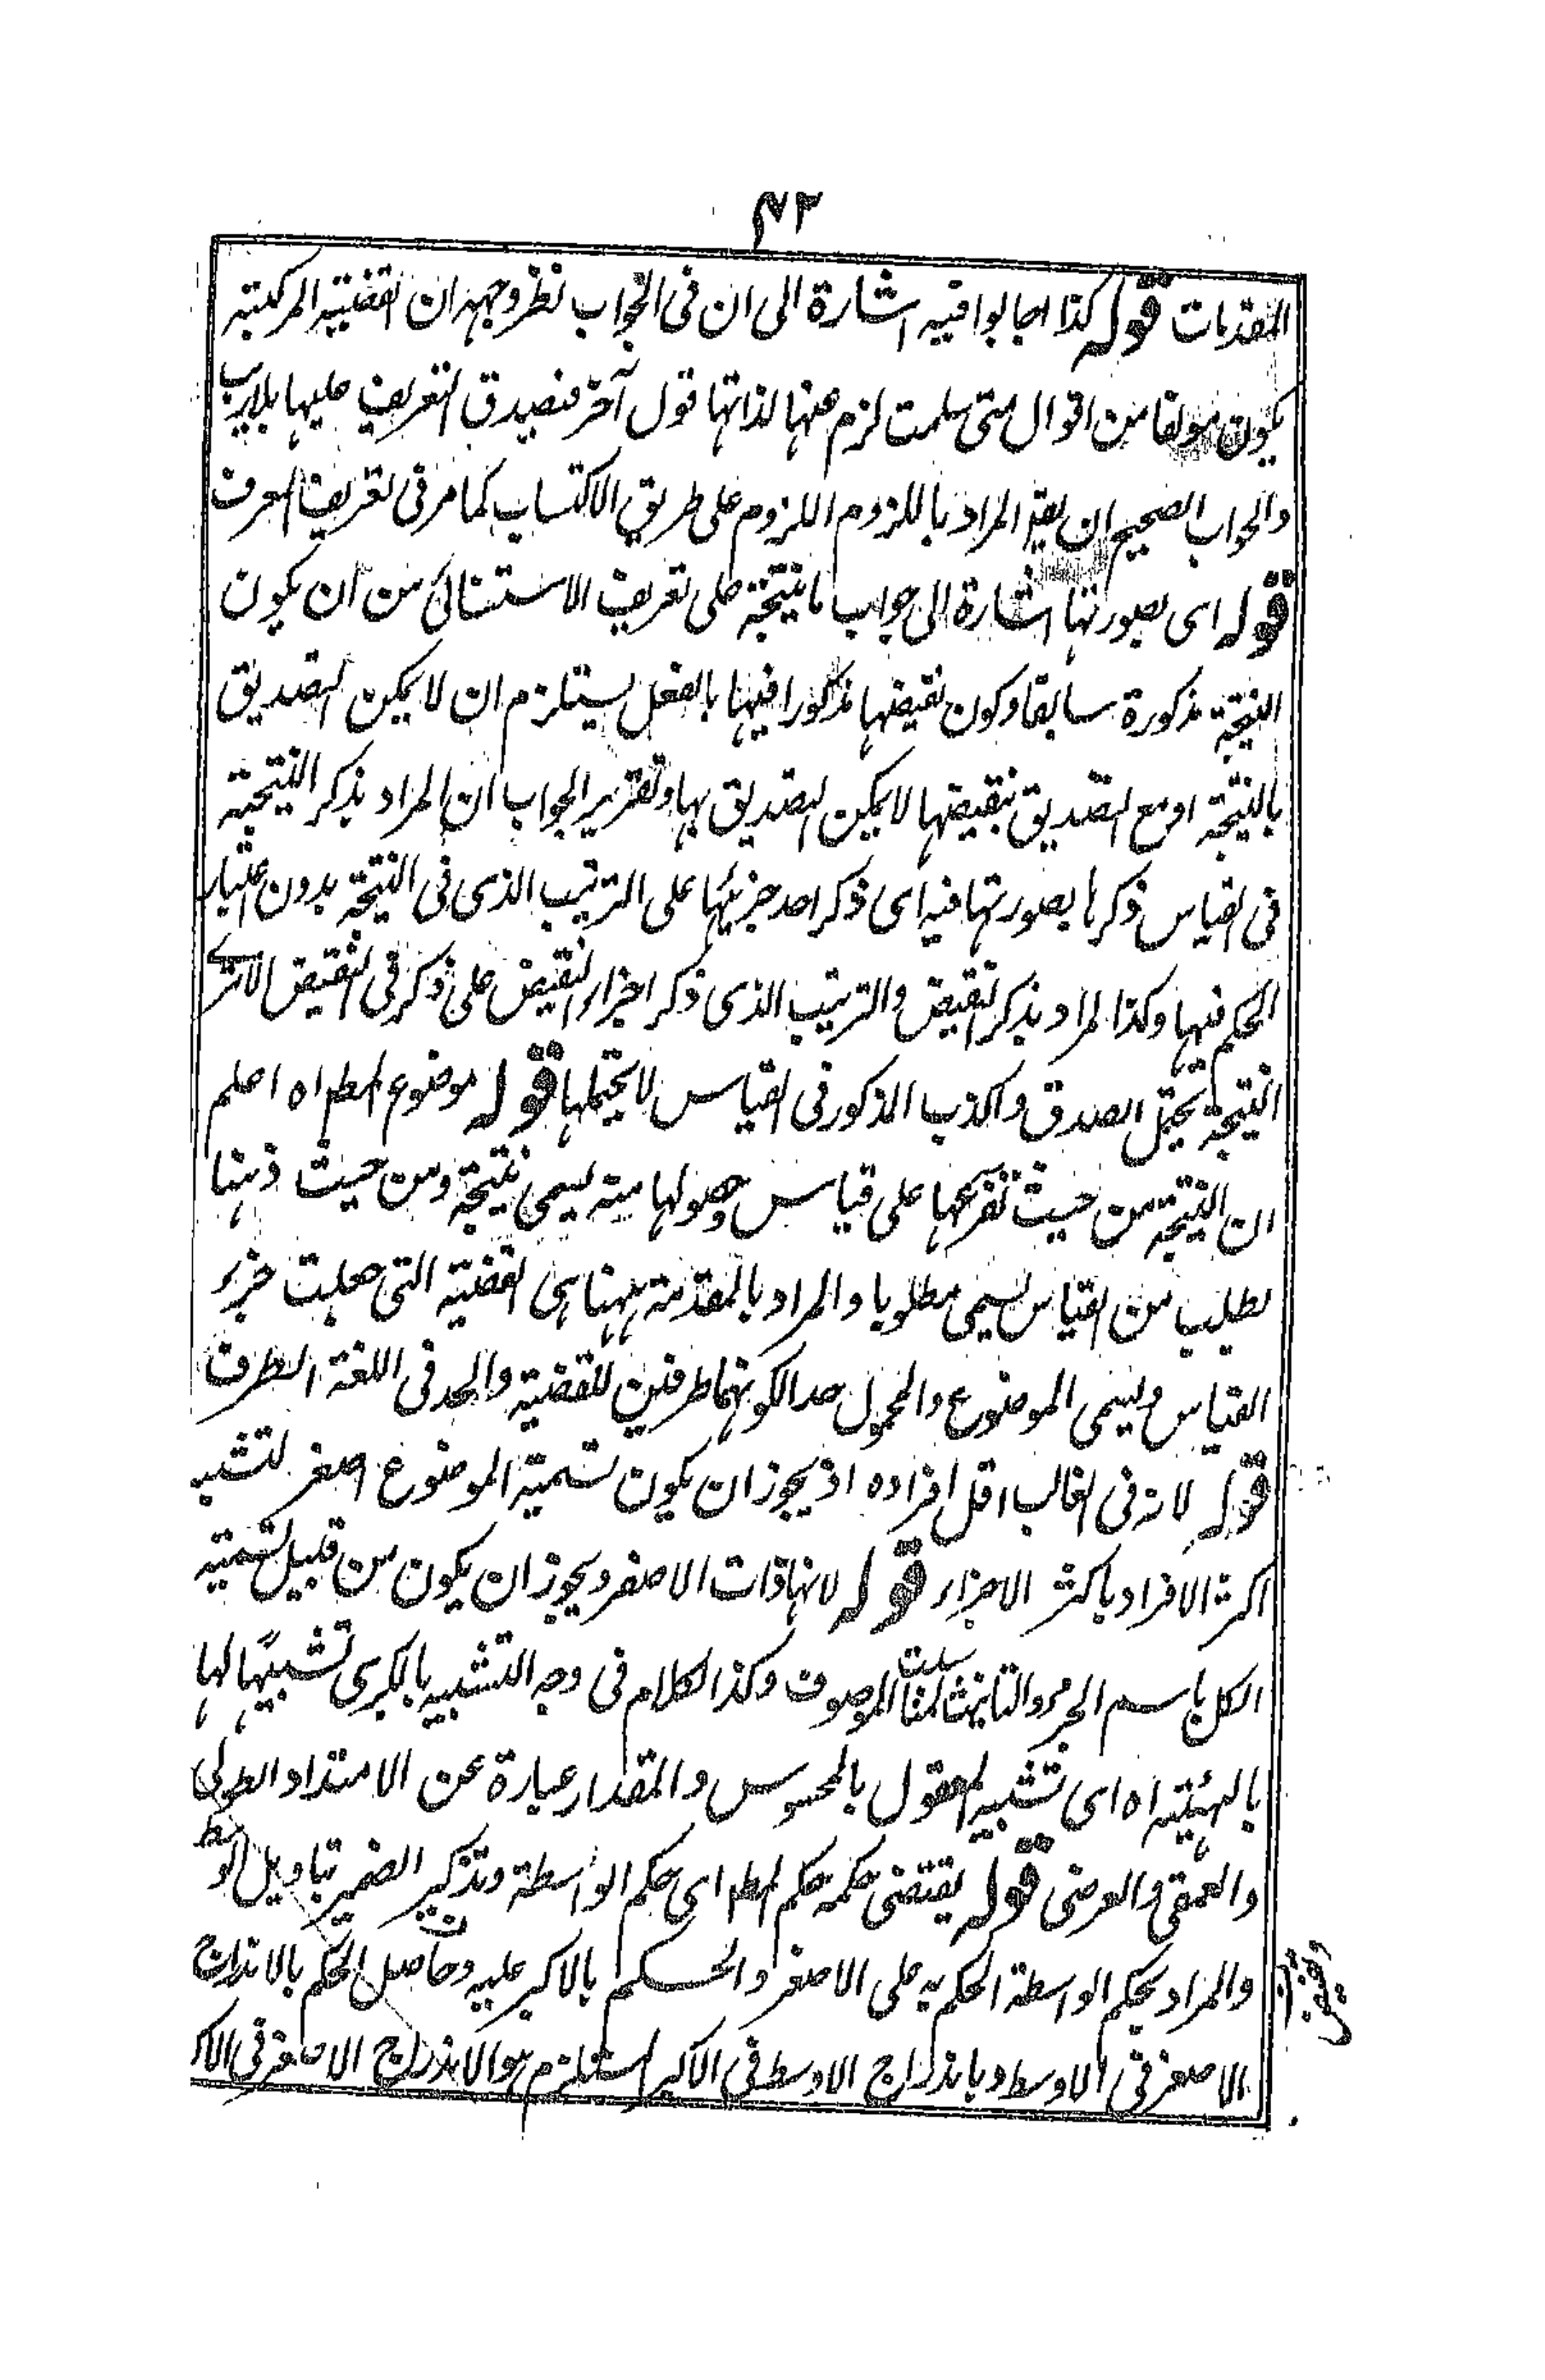 ٤٢
المقدمات قوله كذا اجابوا فيه اشارة الى ان فى الجواب نظر وجهه ان القضية المركبة
يكون مولفا من اقوال متى سلمت لزم عنها لذاتها قول آخر فيصدق التعريف عليها بلاريب
والجواب الصحيح ان يقة المراد باللزوم اللزوم على طريق الاكتساب كما مر فى تعريف المعرف
قوله اى بصورتها اشارة الى جواب ما نتيجة على تعريف الاستثنائى من ان يكون
النتيجة مذكورة سابقا وكون نقيضها مذكورا فيها بالفعل يستلزم ان لا يمكن التصديق
بالنتيجة او مع التصديق بنقيضها لا يمكن التصديق بها وتقرير الجواب ان المراد بذكر النتيجة
فى القياس ذكرها بصورتها فيه اى ذكر احد جزئيها على الترتيب الذى فى النتيجة بدون اعتبار
الحكم فيها وكذا المراد بذكر النقيض والترتيب الذى ذكر اجزاء النقيض على ذكر فى النقيض الا ترى
النتيجة يحتمل الصدق والكذب المذكور فى القياس لا يحتملها قوله موضوع المط اه اعلم
ان النتيجة من حيث تفرعها على قياس وحصولها منه يسمى نتيجة ومن حيث ذهنا
بطلب من القياس يسمى مطلوبا والمراد بالمقدمة ههنا هى القضية التى جعلت جزء
القياس ويسمى الموضوع والمحمول حدا لكونهما طرفين للقضية والحد فى اللغة الطرف
قوله لانه فى الغالب اقل افراده اذ يجوز ان يكون تسمية الموضوع اصغر لتشبه
اكثر الافراد باكثر الاجزاء قوله لانها ذات الاصغر ويجوز ان يكون من قبيل تسمية
الكل باسم الجزء والتانيث الموصوف وكذا الكلام فى وجه التشبيه بالكبرى تشبيها لها
بالهيئة اه اى تشبيه المعقول بالمحسوس والمقدار عبارة عن الامتداد الطولى
والعمقى والعرضى قوله يقتضى حكمه حكم المط اى حكم الواسطة وتذكير الضمير بتاويل الوسط
والمراد بحكم الواسطة الحكم به على الاصغر والحكم بالاكبر عليه وحاصل الحكم بالاندراج
الاصغر فى الاوسط وباندراج الاوسط فى الاكبر استلزم هو الاندراج الاصغر فى الاكبر